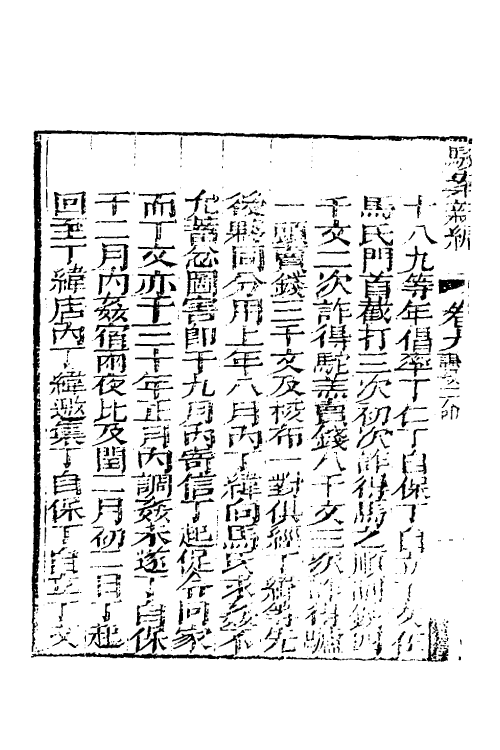 駁案新編 卷九
十八九等年倡率丁仁丁自保丁自立丁文在
馬氏門首截打三次初次詐得馬之順制錢四
千文二次詐得駝羔賣錢八千文三次詐得驢
一頭賣錢三千文及梭布一對俱經丁緯等先
後夥同分用上年八月內丁緯向馬氏求姦不
允蓄忿圖害即于九月內寄信丁起促令回家
而丁文亦于三十年正月內調姦未遂丁自保
于二月內姦宿兩夜比及閏二月初二日丁起
回至丁緯店內丁緯邀集丁自保丁自立丁文